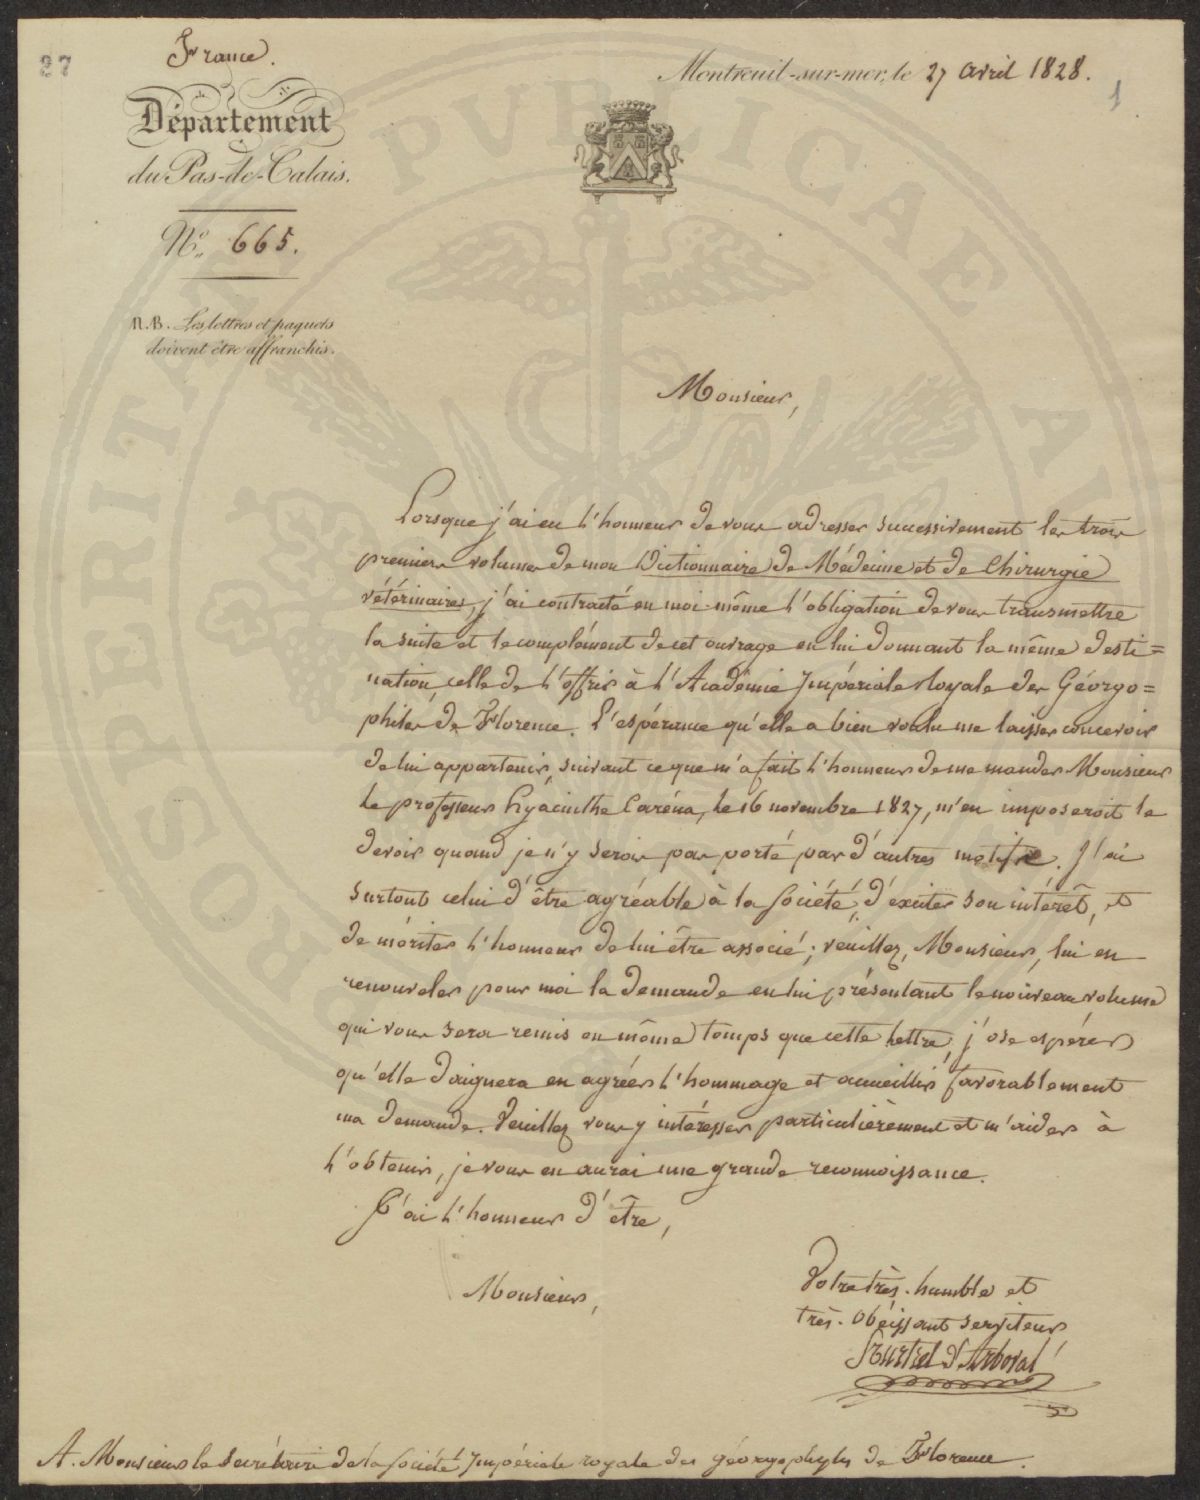 27
France.
Montreuil-sur-mer, le 27 avril 1828.
1
Département
du Pas-de-Calais.
N° 665.
N.B. Les lettres et paquets
doivent être affranchis.
PROSPERITATI PUBLICAE AU
Monsieur,
Lorsque j'ai eu l'honneur de vous adresser successivement les trois
premiers volumes de mon Dictionnaire de Médecine et de Chirurgie
vétérinaires, j'ai contracté en moi-même l'obligation de vous transmettre
la suite et le complément de cet ouvrage en lui donnant la même desti=
nation, celle de l'offrir à l'Académie Impériale Royale des Géorgo=
philes de Florence. L'espérance qu'elle a bien voulu me laisser concevoir
de lui appartenir, suivant ce que m'a fait l'honneur de me mander Monsieur
le professeur hyácinthe Caréna, le 16 novembre 1827, m'en imposeroit le
devoir quand je n'y serois pas porté par d'autres motifs. J'ai
surtout celui d'être agréable à la Société, d'exciter son intérêt, et
de mériter l'honneur de lui être associé; veuillez, Monsieur, lui en
renouveler pour moi la demande en lui présentant le nouveau volume
qui vous sera remis en même temps que cette lettre, j'ose espérer
qu'elle daignera en agréer l'hommage et accueillir favorablement
ma demande. Veuillez vous y intéresser particulièrement et m'aider à
l'obtenir, je vous en aurai une grande reconnoissance.
J'ai l'honneur d'être,
Monsieur,
Votre très-humble et
très-obéissant serviteur
Hurtrel d'Arboval
A. Monsieur le Secrétaire de la Société Impériale royale des géorgophyles de Florence.